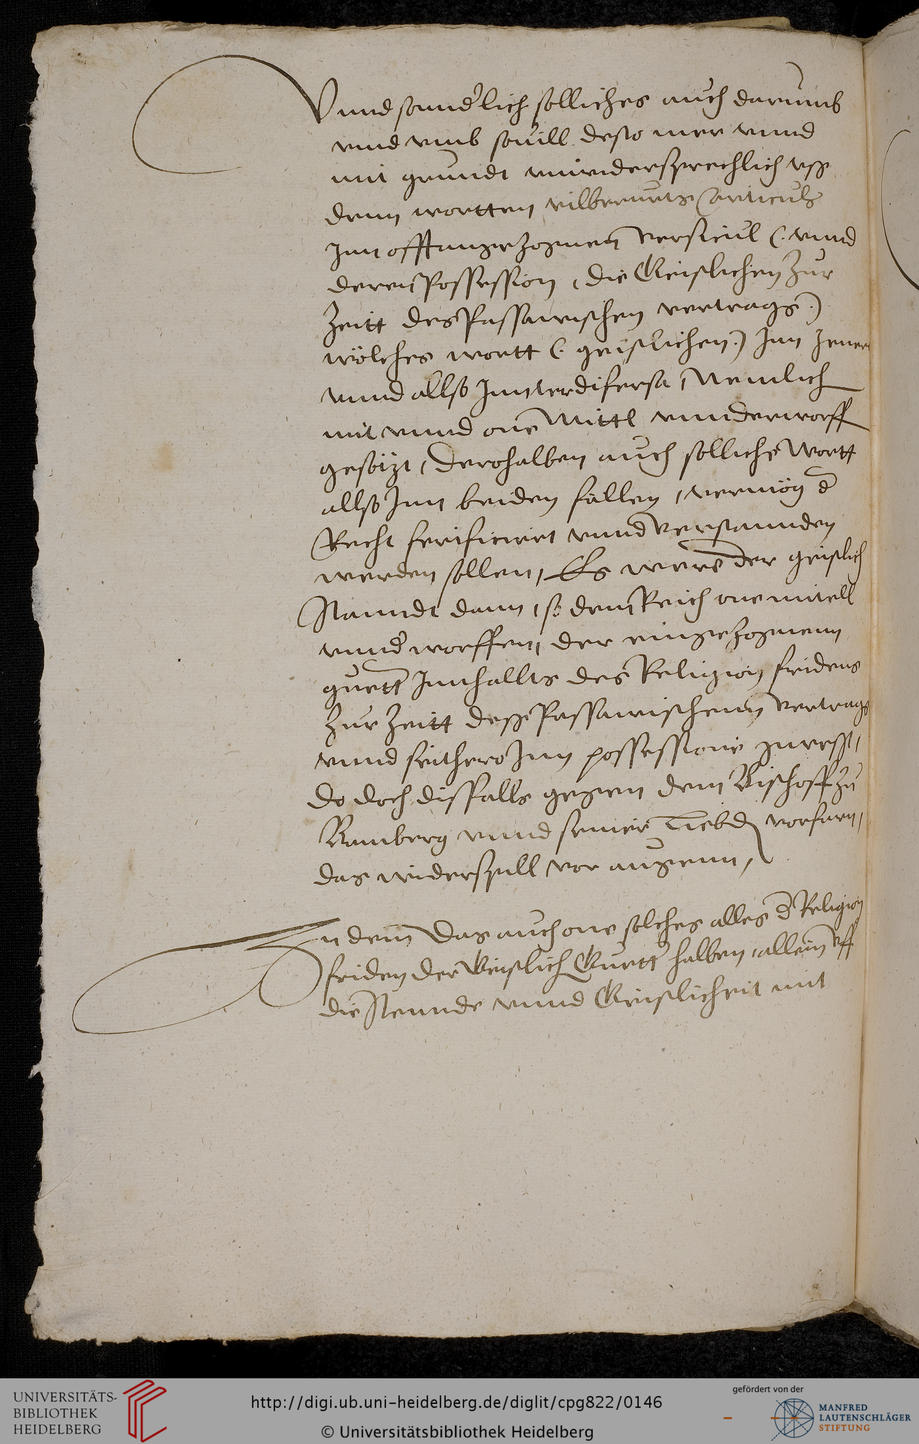 Vnnd sonnderlich solliches auch darumb
vnnd vmb souill desto mer vnnd
mit grundt vnwidersprechlich vss
denn wortten vilberurts Articuls
Inn offt angezognem versicul (: vnnd
deren Possession, die Geistlichen Zur
Zeitt des Passawischen vertrags :)
wölches wortt (: geistlichen :) Inn genere
vnnd allso Inndifersa, Nemlich
mit vnnd one Mittl vnnderworff
gesözt, Derohalben auch solliche Wortt
allso Inn beiden fällen, vermög d
Recht ferificiert vnnd verstannden
werden sollen, Es were der geistlich
Stanndt dann, so dem Reich one mitell
vnnderworffen, der eingezognenn
guetter Innhallts des Religion fridens
Zur Zeitt dess Passawischenn vertrags
vnnd seithero Inn possessione gwesst,
Do doch dissfalls gegenn dem Bischoff zu
Bamberg vnnd seiner Liebd vorfarn,
das widerspill vor augenn,
In dem das auch one solches alles d Religion
friden der Geistlich Guetter halben, allein vff
die Stennde vnnd Geistlicheit mit
UNIVERSITÄTS-
BIBLIOTHEK
HEIDELBERG
http://digi.ub.uni-heidelberg.de/diglit/cpg822/0146
© Universitätsbibliothek Heidelberg
gefördert von der
MANFRED
LAUTENSCHLÄGER
STIFTUNG